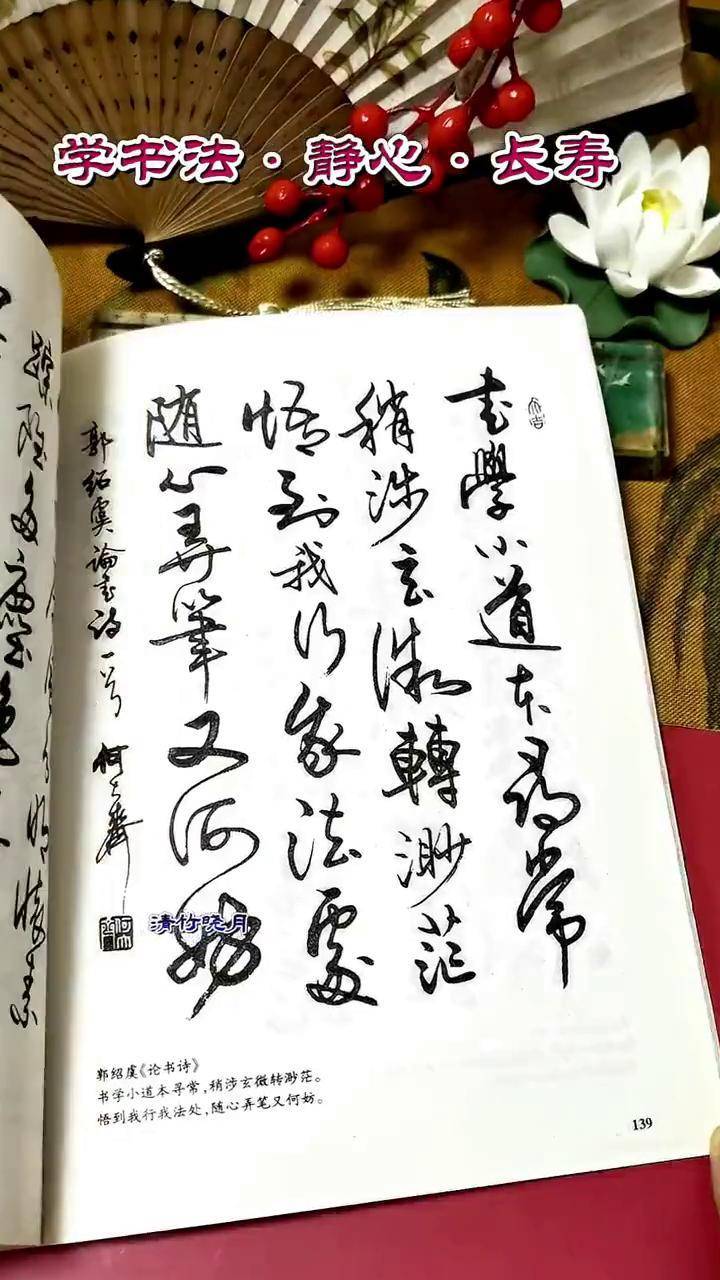 学书法·静心·长寿
书学小道本寻常
稍涉玄微转渺茫
悟到我行我法处
随心弄笔又何妨
郭绍虞论书诗一首
清竹晓月
郭绍虞《论书诗》
书学小道本寻常，稍涉玄微转渺茫。
悟到我行我法处，随心弄笔又何妨。
139